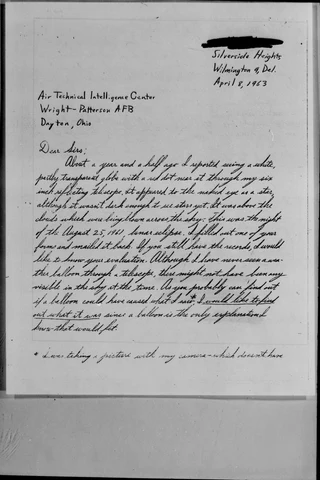 Silverside Heights
Wilmington 9, Del.
April 8, 1963
Air Technical Intelligence Center
Wright-Patterson AFB
Dayton, Ohio
Dear Sirs;
About a year and a half ago I reported seeing a white,
partly transparent globe with a red dot near it through my six
inch reflecting telescope. It appeared to the naked eye as a star,
although it wasn't dark enough to see stars yet. It was above the
clouds which were being blown across the sky. This was the night
of the August 25, 1961, lunar eclipse. I filled out one of your
forms and mailed it back. If you still have the records, I would
like to know your evaluation. Although I have never seen a wea-
ther balloon through a telescope, there might not have been any
visible in the sky at the time. As you probably can find out
if a balloon could have caused what I saw*, I would like to find
out what it was since a balloon is the only explanation I
know that would fit.
* I was taking a picture with my camera - which doesn't have